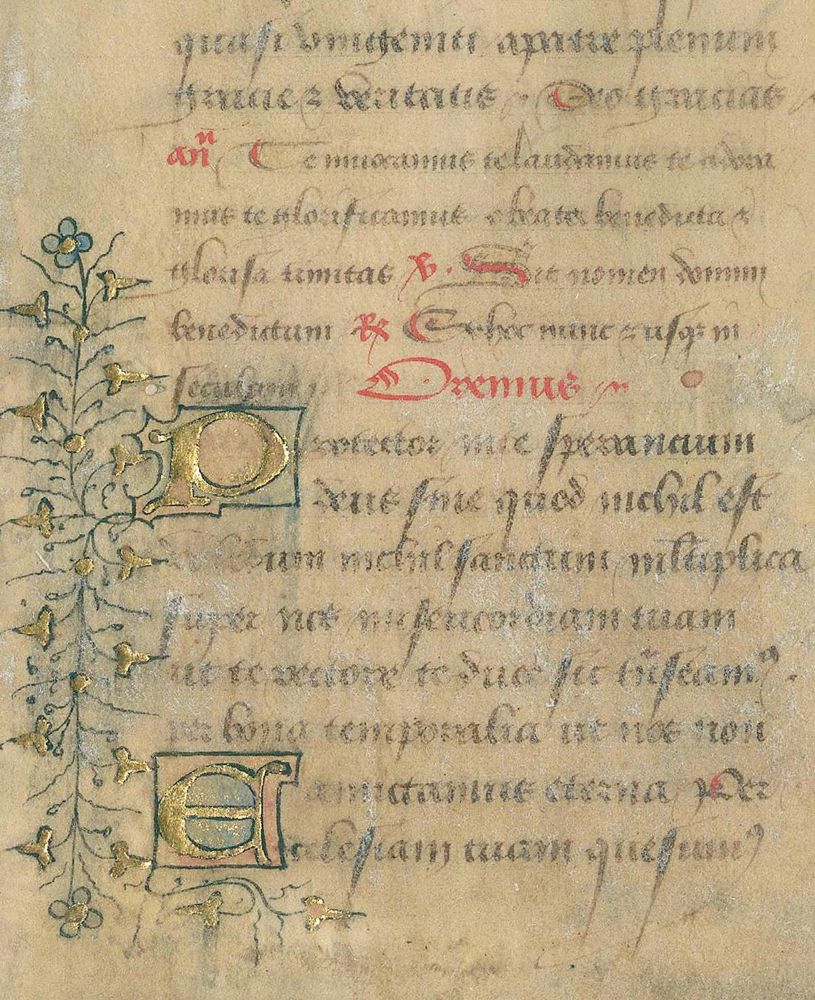 quasi vnigeniti apatre plenum
gracie ⁊ veritatis Deo gracias
añ Te inuocamus te laudamus te adora
mus te glorificamus o beata benedicta ⁊
gloriosa trinitas v̶. Sit nomen domini
benedictum ℞ Ex hoc nunc ⁊ usqꝫ in
seculum Oremus
Protector in te sperancium
deus sine quod nichil est
validum nichil sanctum ml̃tiplica
super nos misericordiam tuam
ut te rectore te duce sic tñseamꝰ
per bona temporalia ut nos non
amittamus eterna Per
Ecclesiam tuam quesumꝰ